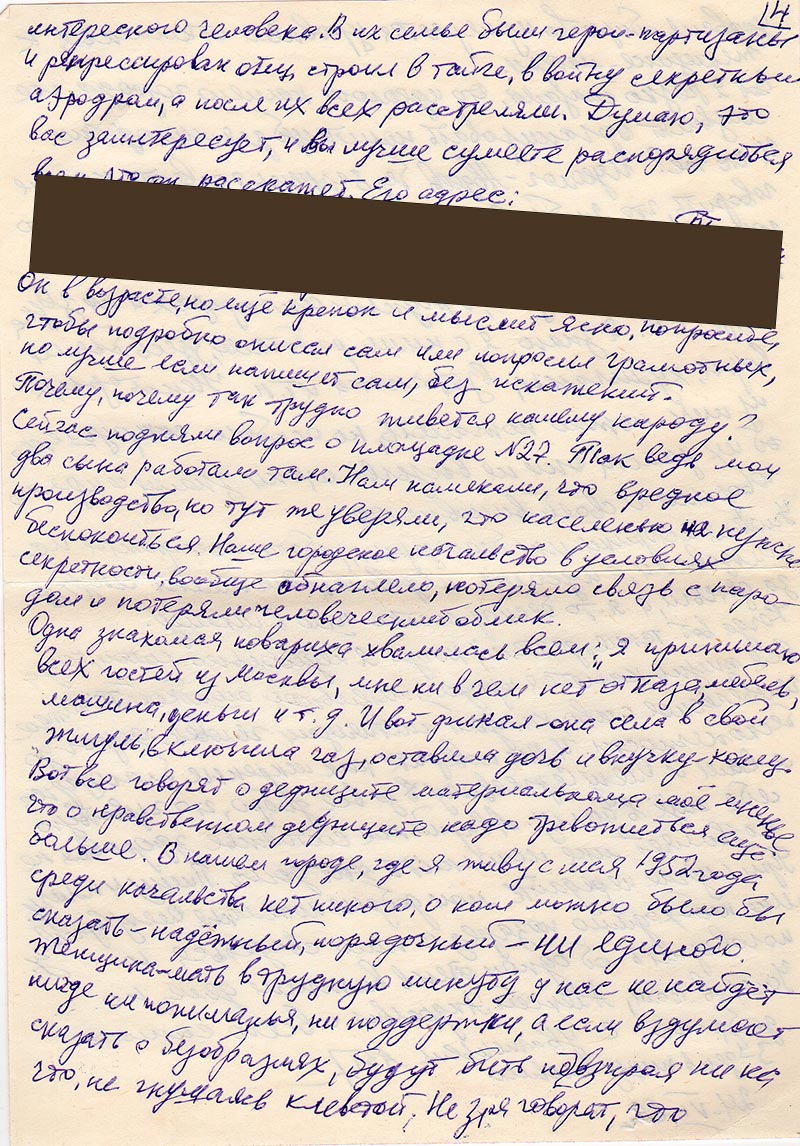 4
интересного человека. В их семье были герои-партизаны
и репрессирован отец, строил в тайге, в войну секретный
аэродром, а после их всех расстреляли. Думаю, это
вас заинтересует, и вы лучше сумеете распорядиться
что он расскажет. Его адрес:
Он в возрасте, но ещё крепок и мыслит ясно, попросите,
чтобы подробно описал сам или попросил грамотных,
но лучше вам напишет сам, без искажений.
Почему, почему так трудно живётся нашему народу?
Сейчас подняли вопрос о площадке №27. Так ведь мои
два сына работали там. Нам намекали, что вредное
производство, но тут же уверяли, что населению не нужно
беспокоиться. Наше городское начальство в условиях
секретности, вообще обнаглело, потеряло связь с наро-
дом и потеряли человеческий облик.
Одна знакомая повариха хвалилась всем: „я принимаю
всех гостей из Москвы, мне ни в чем нет отказа, мебель,
машина, деньги и т.д. И вот финал-она села в свой
жигуль, включила газ, оставила дочь и внучку-конец.
Вот все говорят о дефиците материальном, а моё мненье
что о нравственном дефиците надо тревожиться ещё
больше. В нашем городе, где я живу с мая 1952 года
среди начальства нет никого, о ком можно было бы
сказать-надёжный, порядочный-ни единого.
Женщина-мать в трудную минуту у нас не найдёт
ни пониманья, ни поддержки, а если вздумает
сказать о безобразиях, будут бить невзирая ни на
что, не гнушаясь клеветой. Не зря говорят, что